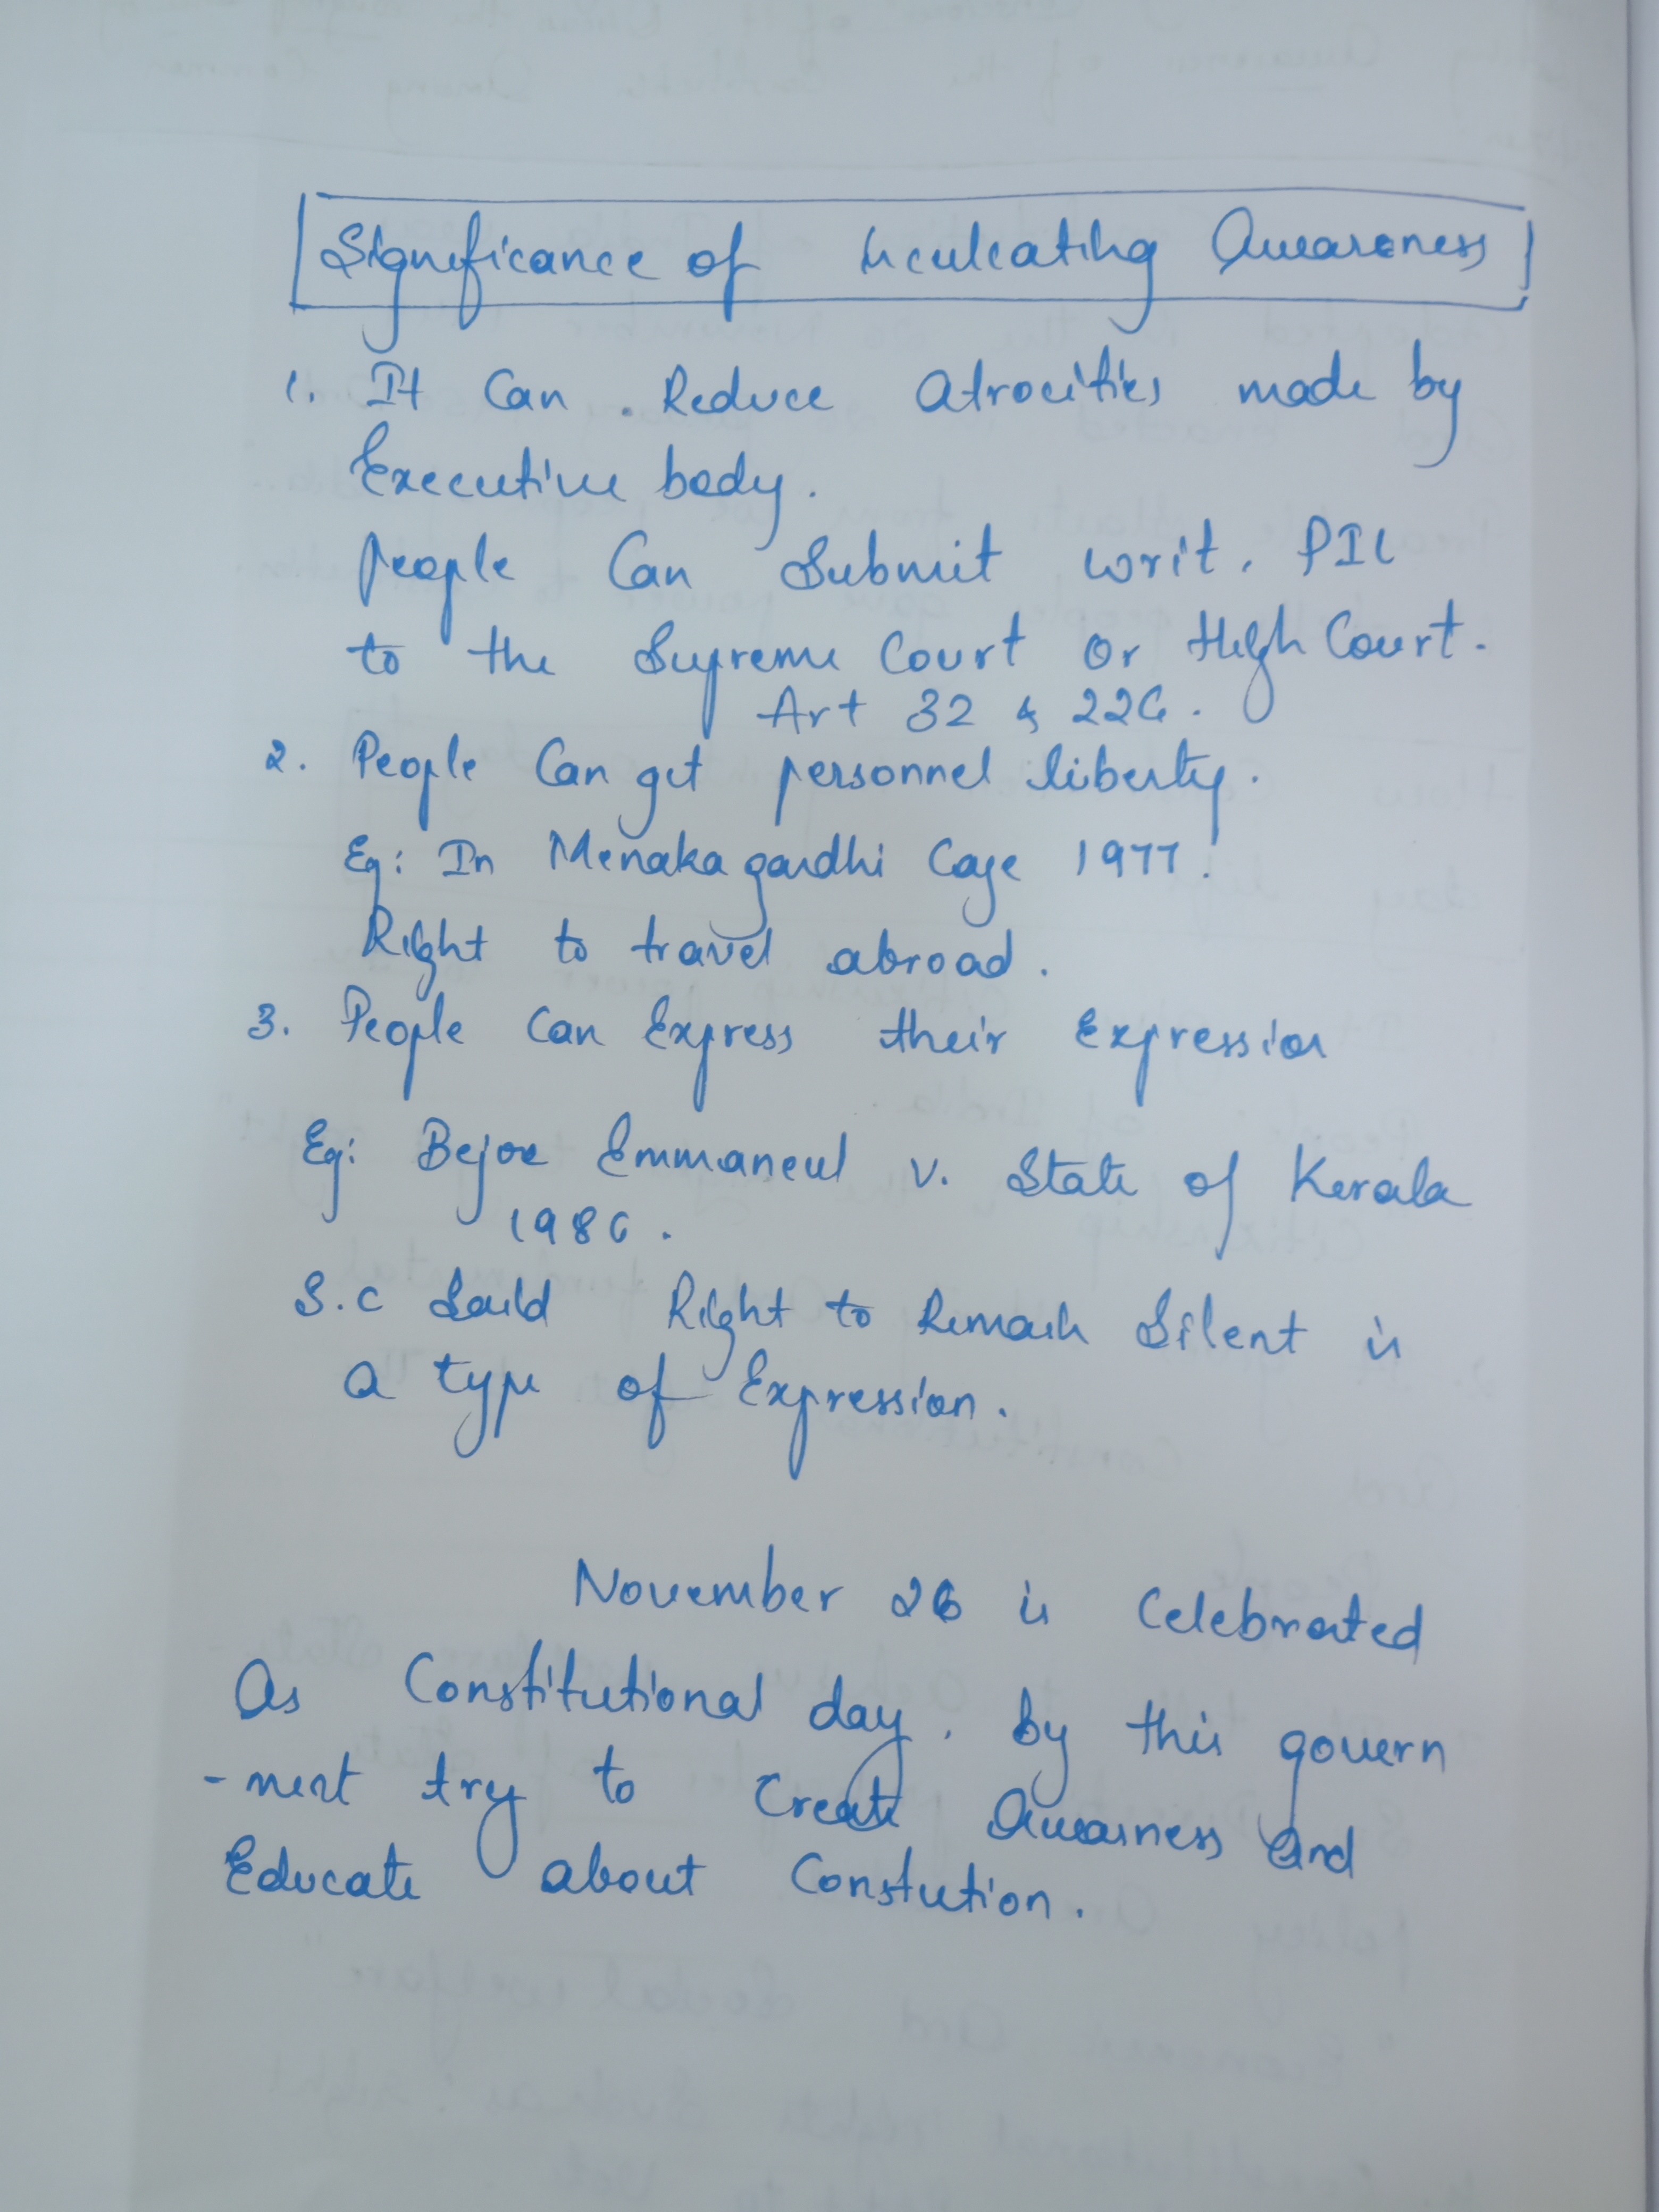 Significance of Inculcating Awareness
1. It Can Reduce Atrocities made by
Executive body.
People Can Submit writ, PIL
to the Supreme Court or High Court.
Art 32 & 226.
2. People Can get personnel liberty.
Eg: In Menaka gandhi Case 1977!
Right to travel abroad.
3. People Can Express their Expression
Eg: Bejoe Emmaneul v. State of Kerala
1986.
S.C Said Right to Remain Silent is
a type of Expression.
November 26 is Celebrated
As Constitutional day, by this govern
-ment try to Create Awarness and
Educate about Constution.